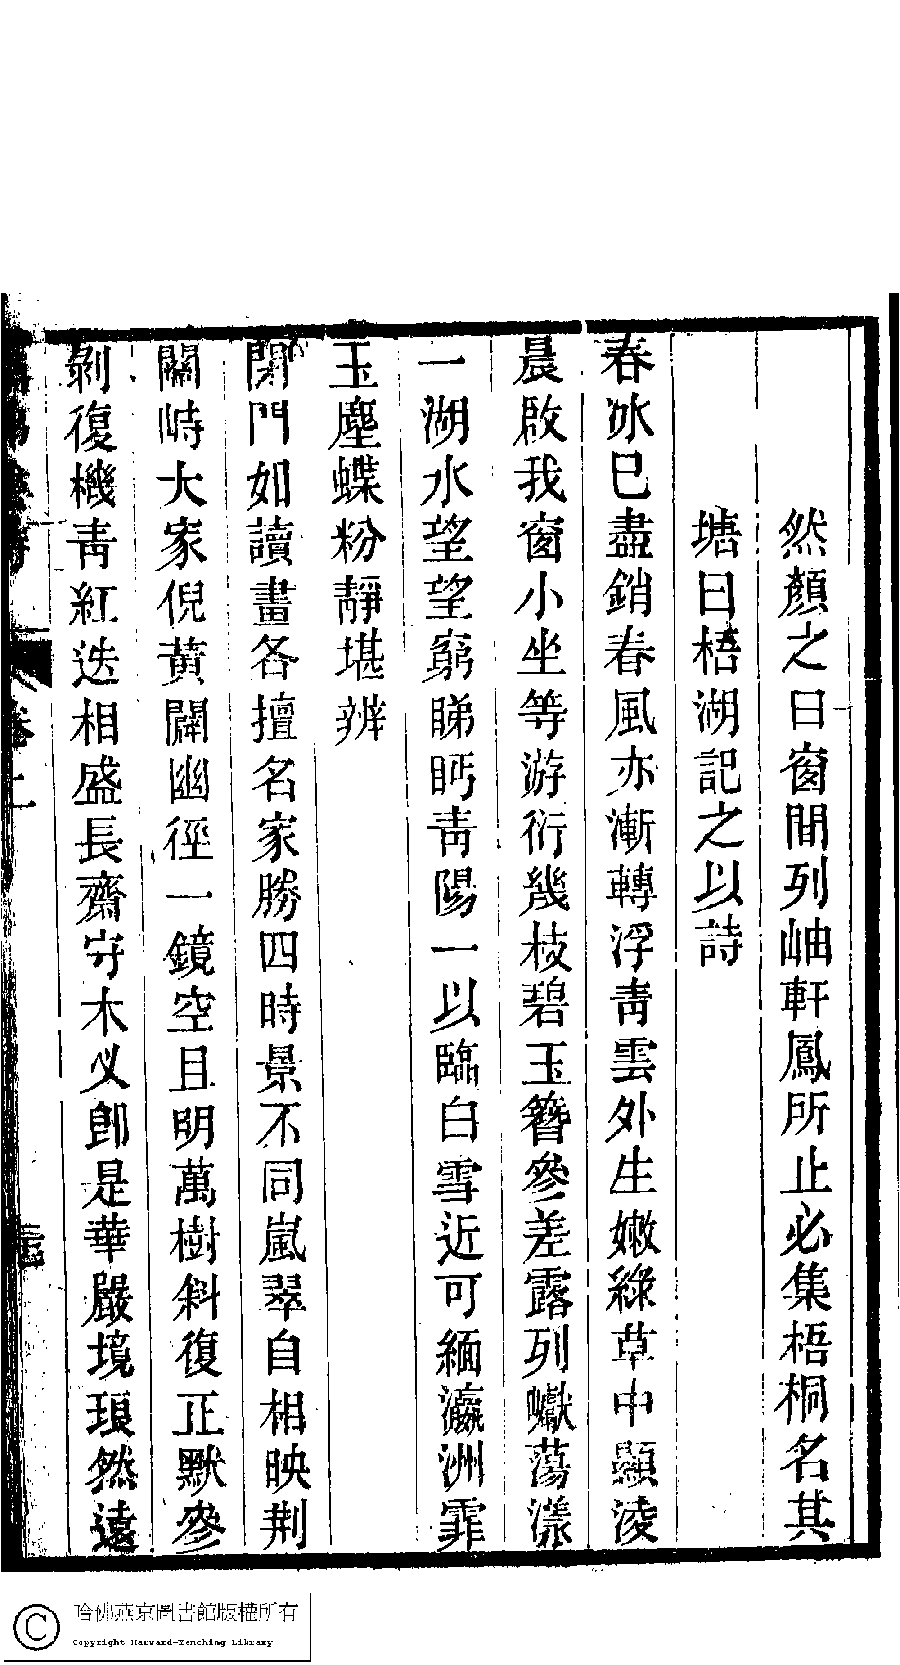 然顏之曰窗間列岫軒鳳所止必集梧桐名其
塘曰梧湖記之以詩
春冰已盡銷春風亦漸轉浮青雲外生嫩綠草中顯淩
晨啟我窗小坐等游衍幾枝碧玉簪參差露列巘蕩漾
一湖水望望窮睇眄青陽一以臨白雪近可緬瀛洲霏
玉塵蝶粉靜堪辨
閉門如讀畫各擅名家勝四時景不同嵐翠自相映荆
關時大家倪黃闢幽徑一鏡空且明萬樹斜復正默參
剝復機青紅迭相盛長齋守木义卽是華嚴境瑱然遠
卷上
哈佛燕京圖書館版權所有
Copyright Harvard-Yenching Library